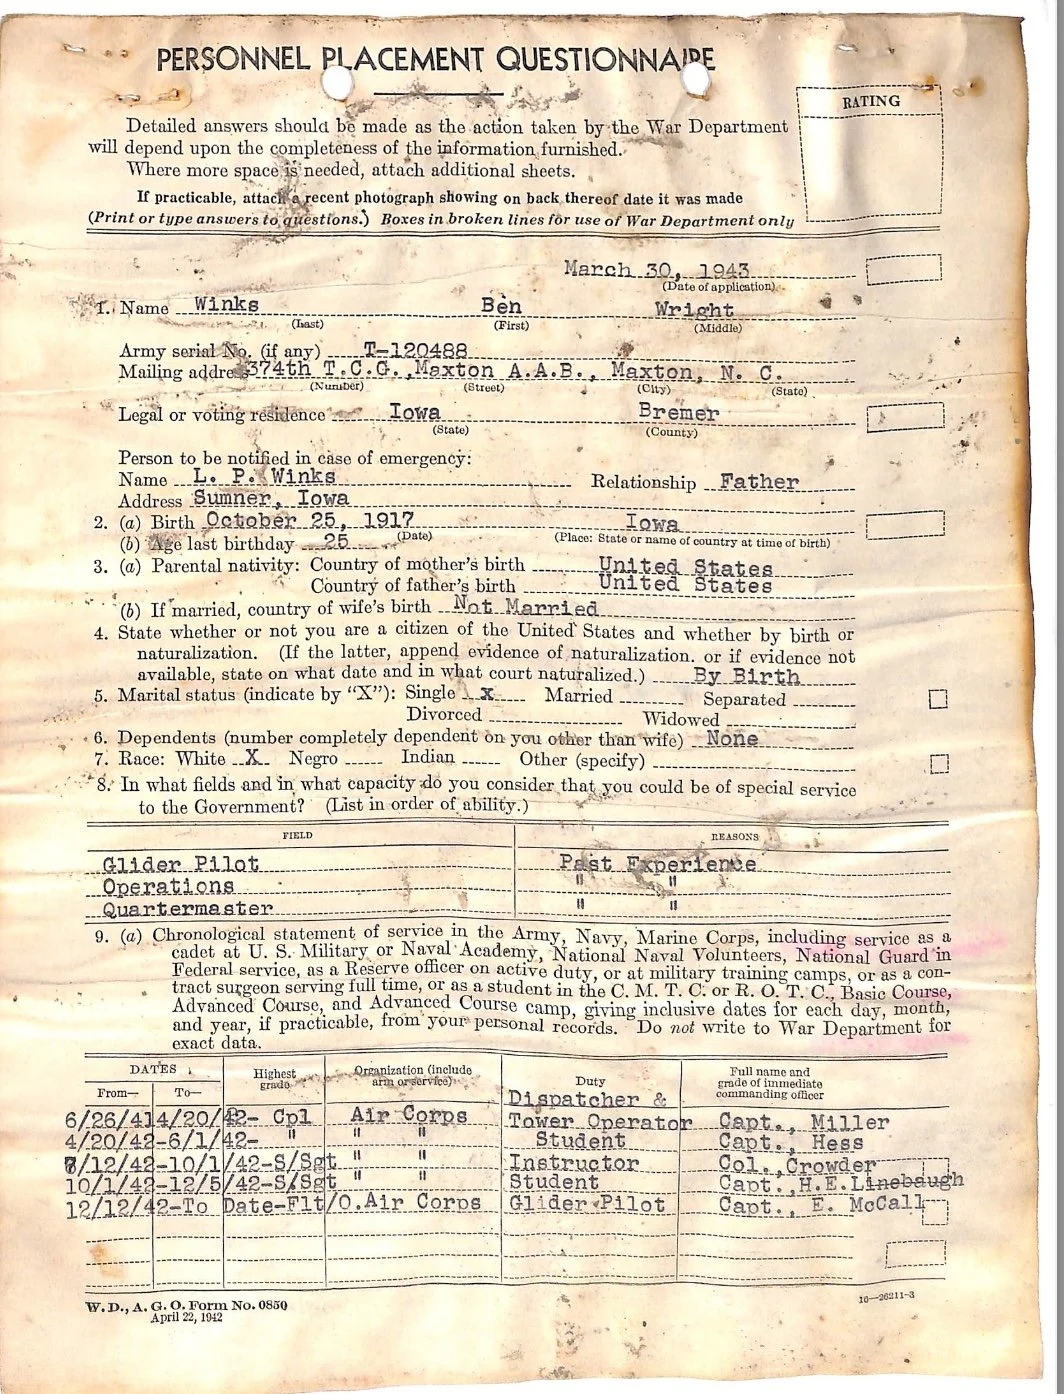 PERSONNEL PLACEMENT QUESTIONNAIRE
RATING
Detailed answers should be made as the action taken by the War Department
will depend upon the completeness of the information furnished.
Where more space is needed, attach additional sheets.
If practicable, attach a recent photograph showing on back thereof date it was made
(Print or type answers to questions.) Boxes in broken lines for use of War Department only
March 30, 1943
(Date of application)
1. Name Winks Ben Wright
(Last) (First) (Middle)
Army serial No. (if any) T-120488
Mailing addre 374th T.C.G., Maxton A.A.B., Maxton, N. C.
(Number) (Street) (City) (State)
Legal or voting residence Iowa Bremer
(State) (County)
Person to be notified in case of emergency:
Name L. P. Winks Relationship Father
Address Sumner, Iowa
2. (a) Birth October 25, 1917 Iowa
(b) Age last birthday 25 (Date) (Place: State or name of country at time of birth)
3. (a) Parental nativity: Country of mother's birth United States
Country of father's birth United States
(b) If married, country of wife's birth Not Married
4. State whether or not you are a citizen of the United States and whether by birth or
naturalization. (If the latter, append evidence of naturalization. or if evidence not
available, state on what date and in what court naturalized.) By Birth
5. Marital status (indicate by "X"): Single x Married Separated
Divorced Widowed
6. Dependents (number completely dependent on you other than wife) None
7. Race: White X Negro Indian Other (specify)
8. In what fields and in what capacity do you consider that you could be of special service
to the Government? (List in order of ability.)
FIELD REASONS
Glider Pilot Past Experience
Operations " "
Quartermaster " "
9. (a) Chronological statement of service in the Army, Navy, Marine Corps, including service as a
cadet at U. S. Military or Naval Academy, National Naval Volunteers, National Guard in
Federal service, as a Reserve officer on active duty, or at military training camps, or as a con-
tract surgeon serving full time, or as a student in the C. M. T. C. or R. O. T. C., Basic Course,
Advanced Course, and Advanced Course camp, giving inclusive dates for each day, month,
and year, if practicable, from your personal records. Do not write to War Department for
exact data.
DATES Highest grade Organization (include arm or service) Duty Full name and grade of immediate commanding officer
From— To—
Dispatcher &
6/26/41 4/20/42- Cpl Air Corps Tower Operator Capt., Miller
4/20/42-6/1/42- " " " Student Capt., Hess
/12/42-10/1/42-S/Sgt " " Instructor Col., Crowder
10/1/42-12/5/42-S/Sgt " " Student Capt., H.E.Linebaugh
12/12/42-To Date-Flt/O. Air Corps Glider Pilot Capt., E. McCall
W. D., A. G. O. Form No. 0850
April 22, 1942
16—26211-3